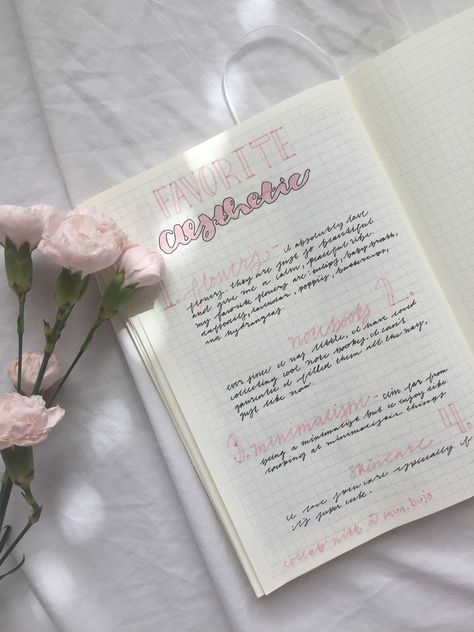 FAVORITE
aesthetic
1. flowers - i absolutely love
flowers. they are just so beautiful
and give me a calm, peaceful vibe.
my favorite flowers are: tulips, baby breath,
daffodils, lavendar, poppies, buttercups,
and hydrangeas.
notebooks 2.
ever since i was little, i have loved
collecting cool note books. i can't
guarentee i filled them all the way,
just like now.
3. minimalism - i'm far from
being a minimalist but i enjoy
looking at minimalistic things
skincare 4.
i love skin care especially if
it's super cute.
collab with @